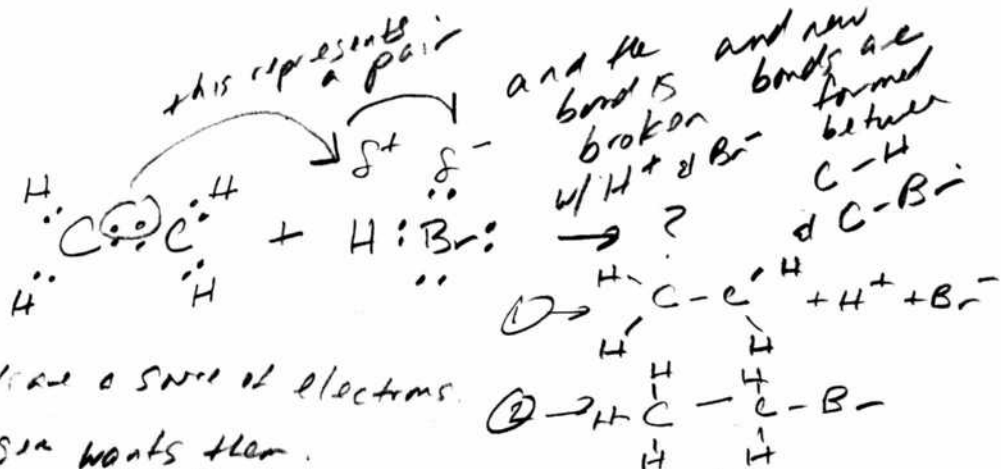 this represents
a pair
and the
bond is
broken
w/ H⁺ & Br⁻
?
and new
bonds are
formed
between
C-H
& C-Br
δ⁺ δ⁻
H H
C :: C + H : Br : →
H H
① → H C - C H + H⁺ + Br⁻
H H
H H
② → H C - C - Br
H H
are a source of electrons.
wants them.